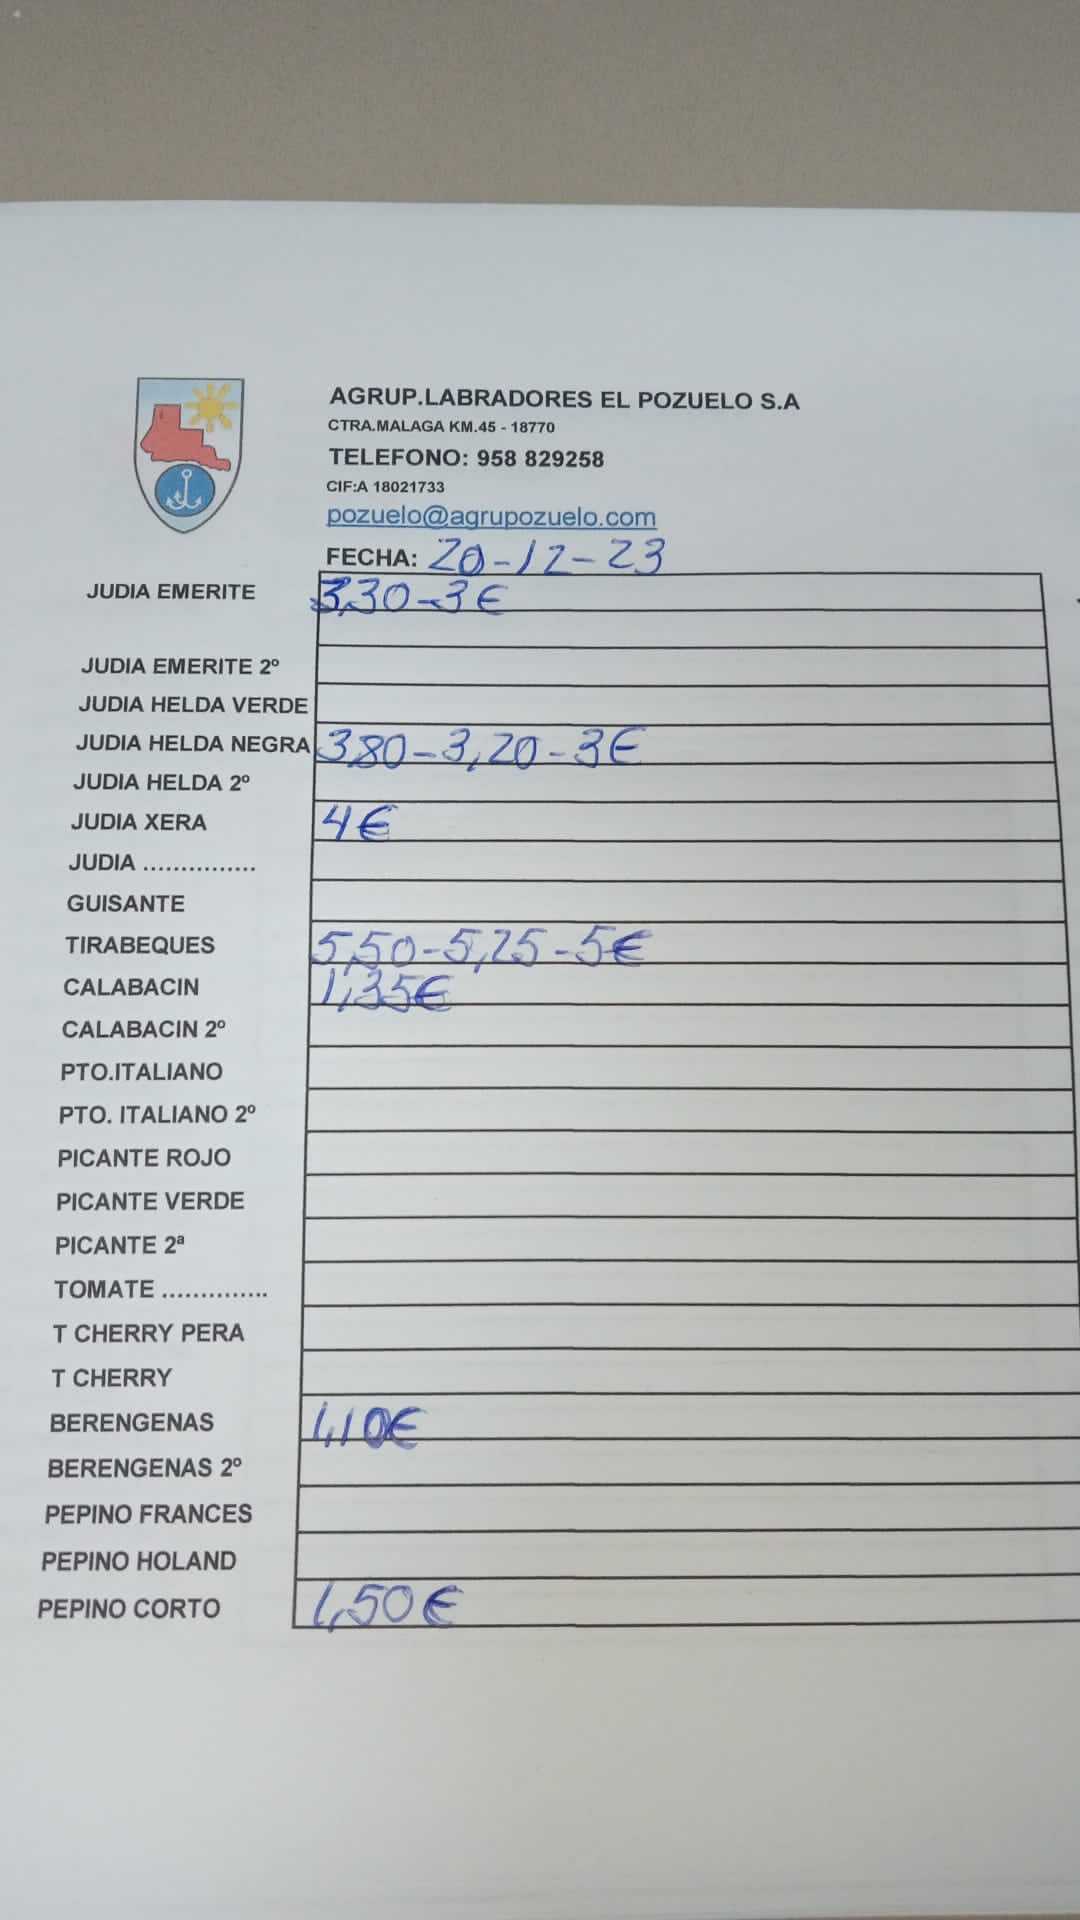 AGRUP.LABRADORES EL POZUELO S.A
CTRA.MALAGA KM.45 - 18770
TELEFONO: 958 829258
CIF:A 18021733
pozuelo@agrupozuelo.com
FECHA: 20-12-23
JUDIA EMERITE 3,30-3€
JUDIA EMERITE 2º
JUDIA HELDA VERDE
JUDIA HELDA NEGRA 3,80-3,20-3€
JUDIA HELDA 2º
JUDIA XERA 4€
JUDIA ...............
GUISANTE
TIRABEQUES 5,50-5,25-5€
CALABACIN 1,35€
CALABACIN 2º
PTO.ITALIANO
PTO. ITALIANO 2º
PICANTE ROJO
PICANTE VERDE
PICANTE 2ª
TOMATE ..............
T CHERRY PERA
T CHERRY
BERENGENAS 1,10€
BERENGENAS 2º
PEPINO FRANCES
PEPINO HOLAND
PEPINO CORTO 1,50€